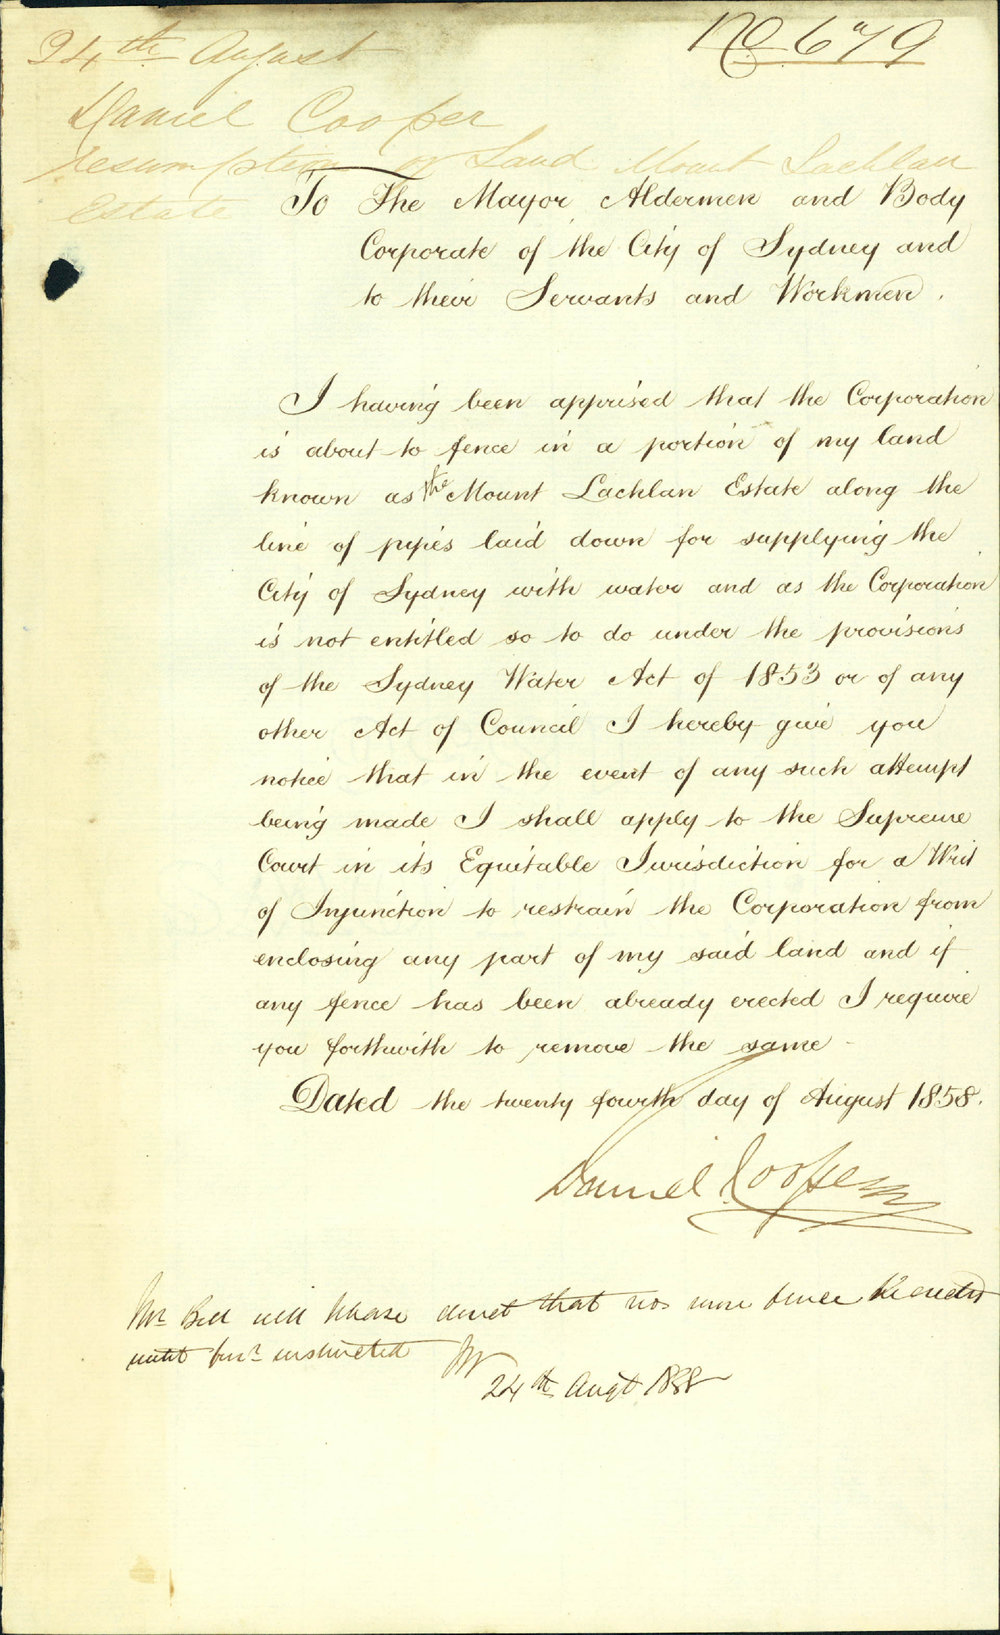 No 679
24th August
Daniel Cooper
resumption of Land Mount Lachlan
Estate
To The Mayor Aldermen and Body
Corporate of the City of Sydney and
to their Servants and Workmen.
I having been apprised that the Corporation
is about to fence in a portion of my land
known as the Mount Lachlan Estate along the
line of pipes laid down for supplying the
City of Sydney with water and as the Corporation
is not entitled so to do under the provisions
of the Sydney Water Act of 1853 or of any
other Act of Council I hereby give you
notice that in the event of any such attempt
being made I shall apply to the Supreme
Court in its Equitable Jurisdiction for a Writ
of Injunction to restrain the Corporation from
enclosing any part of my said land and if
any fence has been already erected I require
you forthwith to remove the same -
Dated the twenty fourth day of August 1858.
Daniel Cooper
Mr Bell will please direct that no more fence be erected
until furr instructed
24th Augt 1858